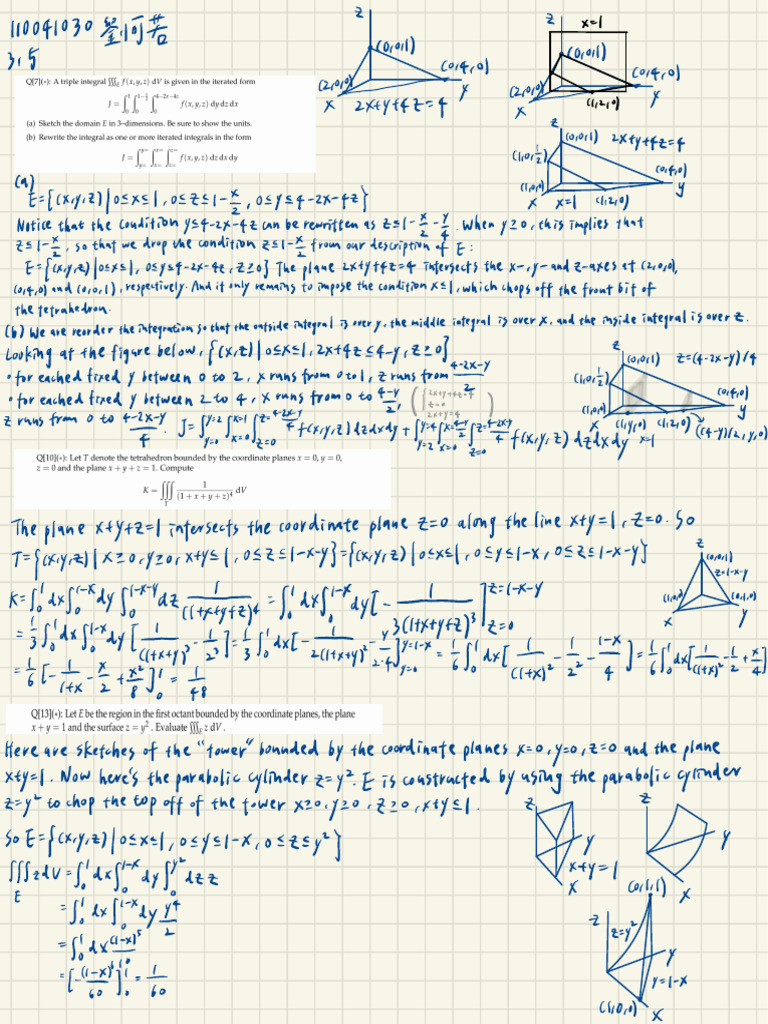 110041030 劉何若
3.5
Q[7](*): A triple integral ∭_E f(x, y, z) dV is given in the iterated form
J = ∫_0^1 ∫_0^{1-x/2} ∫_0^{4-2x-4z} f(x, y, z) dy dz dx
(a) Sketch the domain E in 3–dimensions. Be sure to show the units.
(b) Rewrite the integral as one or more iterated integrals in the form
J = ∫_{y=}^{y=} ∫_{x=}^{x=} ∫_{z=}^{z=} f(x, y, z) dz dx dy
z
(0,0,1)
(0,4,0)
(2,0,0)
y
x
2x+y+4z=4
z
x=1
(0,0,1)
(0,4,0)
(2,0,0)
y
(1,2,0)
x
z
(0,0,1) 2x+y+4z=4
(1,0,1/2)
(0,4,0)
(1,0,0)
y
x x=1 (1,2,0)
(a)
E={(x,y,z)|0≤x≤1, 0≤z≤1-x/2, 0≤y≤4-2x-4z}
Notice that the condition y≤4-2x-4z can be rewritten as z≤1-x/2-y/4. When y≥0, this implies that
z≤1-x/2, so that we drop the condition z≤1-x/2 from our description of E:
E={(x,y,z)|0≤x≤1, 0≤y≤4-2x-4z, z≥0} The plane 2x+y+4z=4 intersects the x-, y- and z-axes at (2,0,0),
(0,4,0) and (0,0,1), respectively. And it only remains to impose the condition x≤1, which chops off the front bit of
the tetrahedron.
(b) We are reorder the integration so that the outside integral is over y, the middle integral is over x, and the inside integral is over z.
Looking at the figure below, {(x,z)|0≤x≤1, 2x+4z≤4-y, z≥0}
·for eached fixed y between 0 to 2, x runs from 0 to 1, z runs from 4-2x-y/2
·for eached fixed y between 2 to 4, x runs from 0 to 4-y/2,
z runs from 0 to 4-2x-y/4. J=∫_{y=0}^{y=2}∫_{x=0}^{x=1}∫_{z=0}^{z=4-2x-y/4} f(x,y,z)dzdxdy+∫_{y=2}^{y=4}∫_{x=0}^{x=4-y/2}∫_{z=0}^{z=4-2x-y/4} f(x,y,z) dzdxdy
z
(0,0,1) z=(4-2x-y)/4
(1,0,1/2)
(0,4,0)
(1,0,0)
y
x (1,y,0) (1,2,0) ((4-y)/2,y,0)
x=1
Q[10](*): Let T denote the tetrahedron bounded by the coordinate planes x = 0, y = 0,
z = 0 and the plane x + y + z = 1. Compute
K = ∭_T 1/(1 + x + y + z)^4 dV
The plane x+y+z=1 intersects the coordinate plane z=0 along the line x+y=1, z=0. So
T={(x,y,z)|x≥0, y≥0, x+y≤1, 0≤z≤1-x-y}={(x,y,z)|0≤x≤1, 0≤y≤1-x, 0≤z≤1-x-y}
K=∫_0^1 dx∫_0^{1-x} dy∫_0^{1-x-y} dz 1/(1+x+y+z)^4 = ∫_0^1 dx∫_0^{1-x} dy[-1/3(1+x+y+z)^3]_{z=0}^{z=1-x-y}
=1/3∫_0^1 dx∫_0^{1-x} dy[1/(1+x+y)^3-1/2^3]=1/3∫_0^1 dx[-1/2(1+x+y)^2-y/2·4]_{y=0}^{y=1-x}=1/6∫_0^1 dx[1/(1+x)^2-1/2^2-1-x/4]=1/6∫_0^1 dx[1/(1+x)^2-1/2+x/4]
=1/6[-1/1+x-x/2+x^2/8]_0^1=1/48
z
(0,0,1)
z=1-x-y
(1,0,0)
(0,1,0)
x
y
Q[13](*): Let E be the region in the first octant bounded by the coordinate planes, the plane
x + y = 1 and the surface z = y^2. Evaluate ∭_E z dV.
Here are sketches of the "tower" bounded by the coordinate planes x=0, y=0, z=0 and the plane
x+y=1. Now here's the parabolic cylinder z=y^2. E is constructed by using the parabolic cylinder
z=y^2 to chop the top off of the tower x≥0, y≥0, z≥0, x+y≤1.
So E={(x,y,z)|0≤x≤1, 0≤y≤1-x, 0≤z≤y^2}
∭_E zdV=∫_0^1 dx∫_0^{1-x} dy∫_0^{y^2} dz z
=∫_0^1 dx∫_0^{1-x} dy y^4/2
=∫_0^1 dx (1-x)^5/10
=[-(1-x)^6/60]_0^1=1/60
z
y
x+y=1
x
z
y
x
(0,1,1)
z
z=y^2
y
y=1-x
(1,0,0)
x